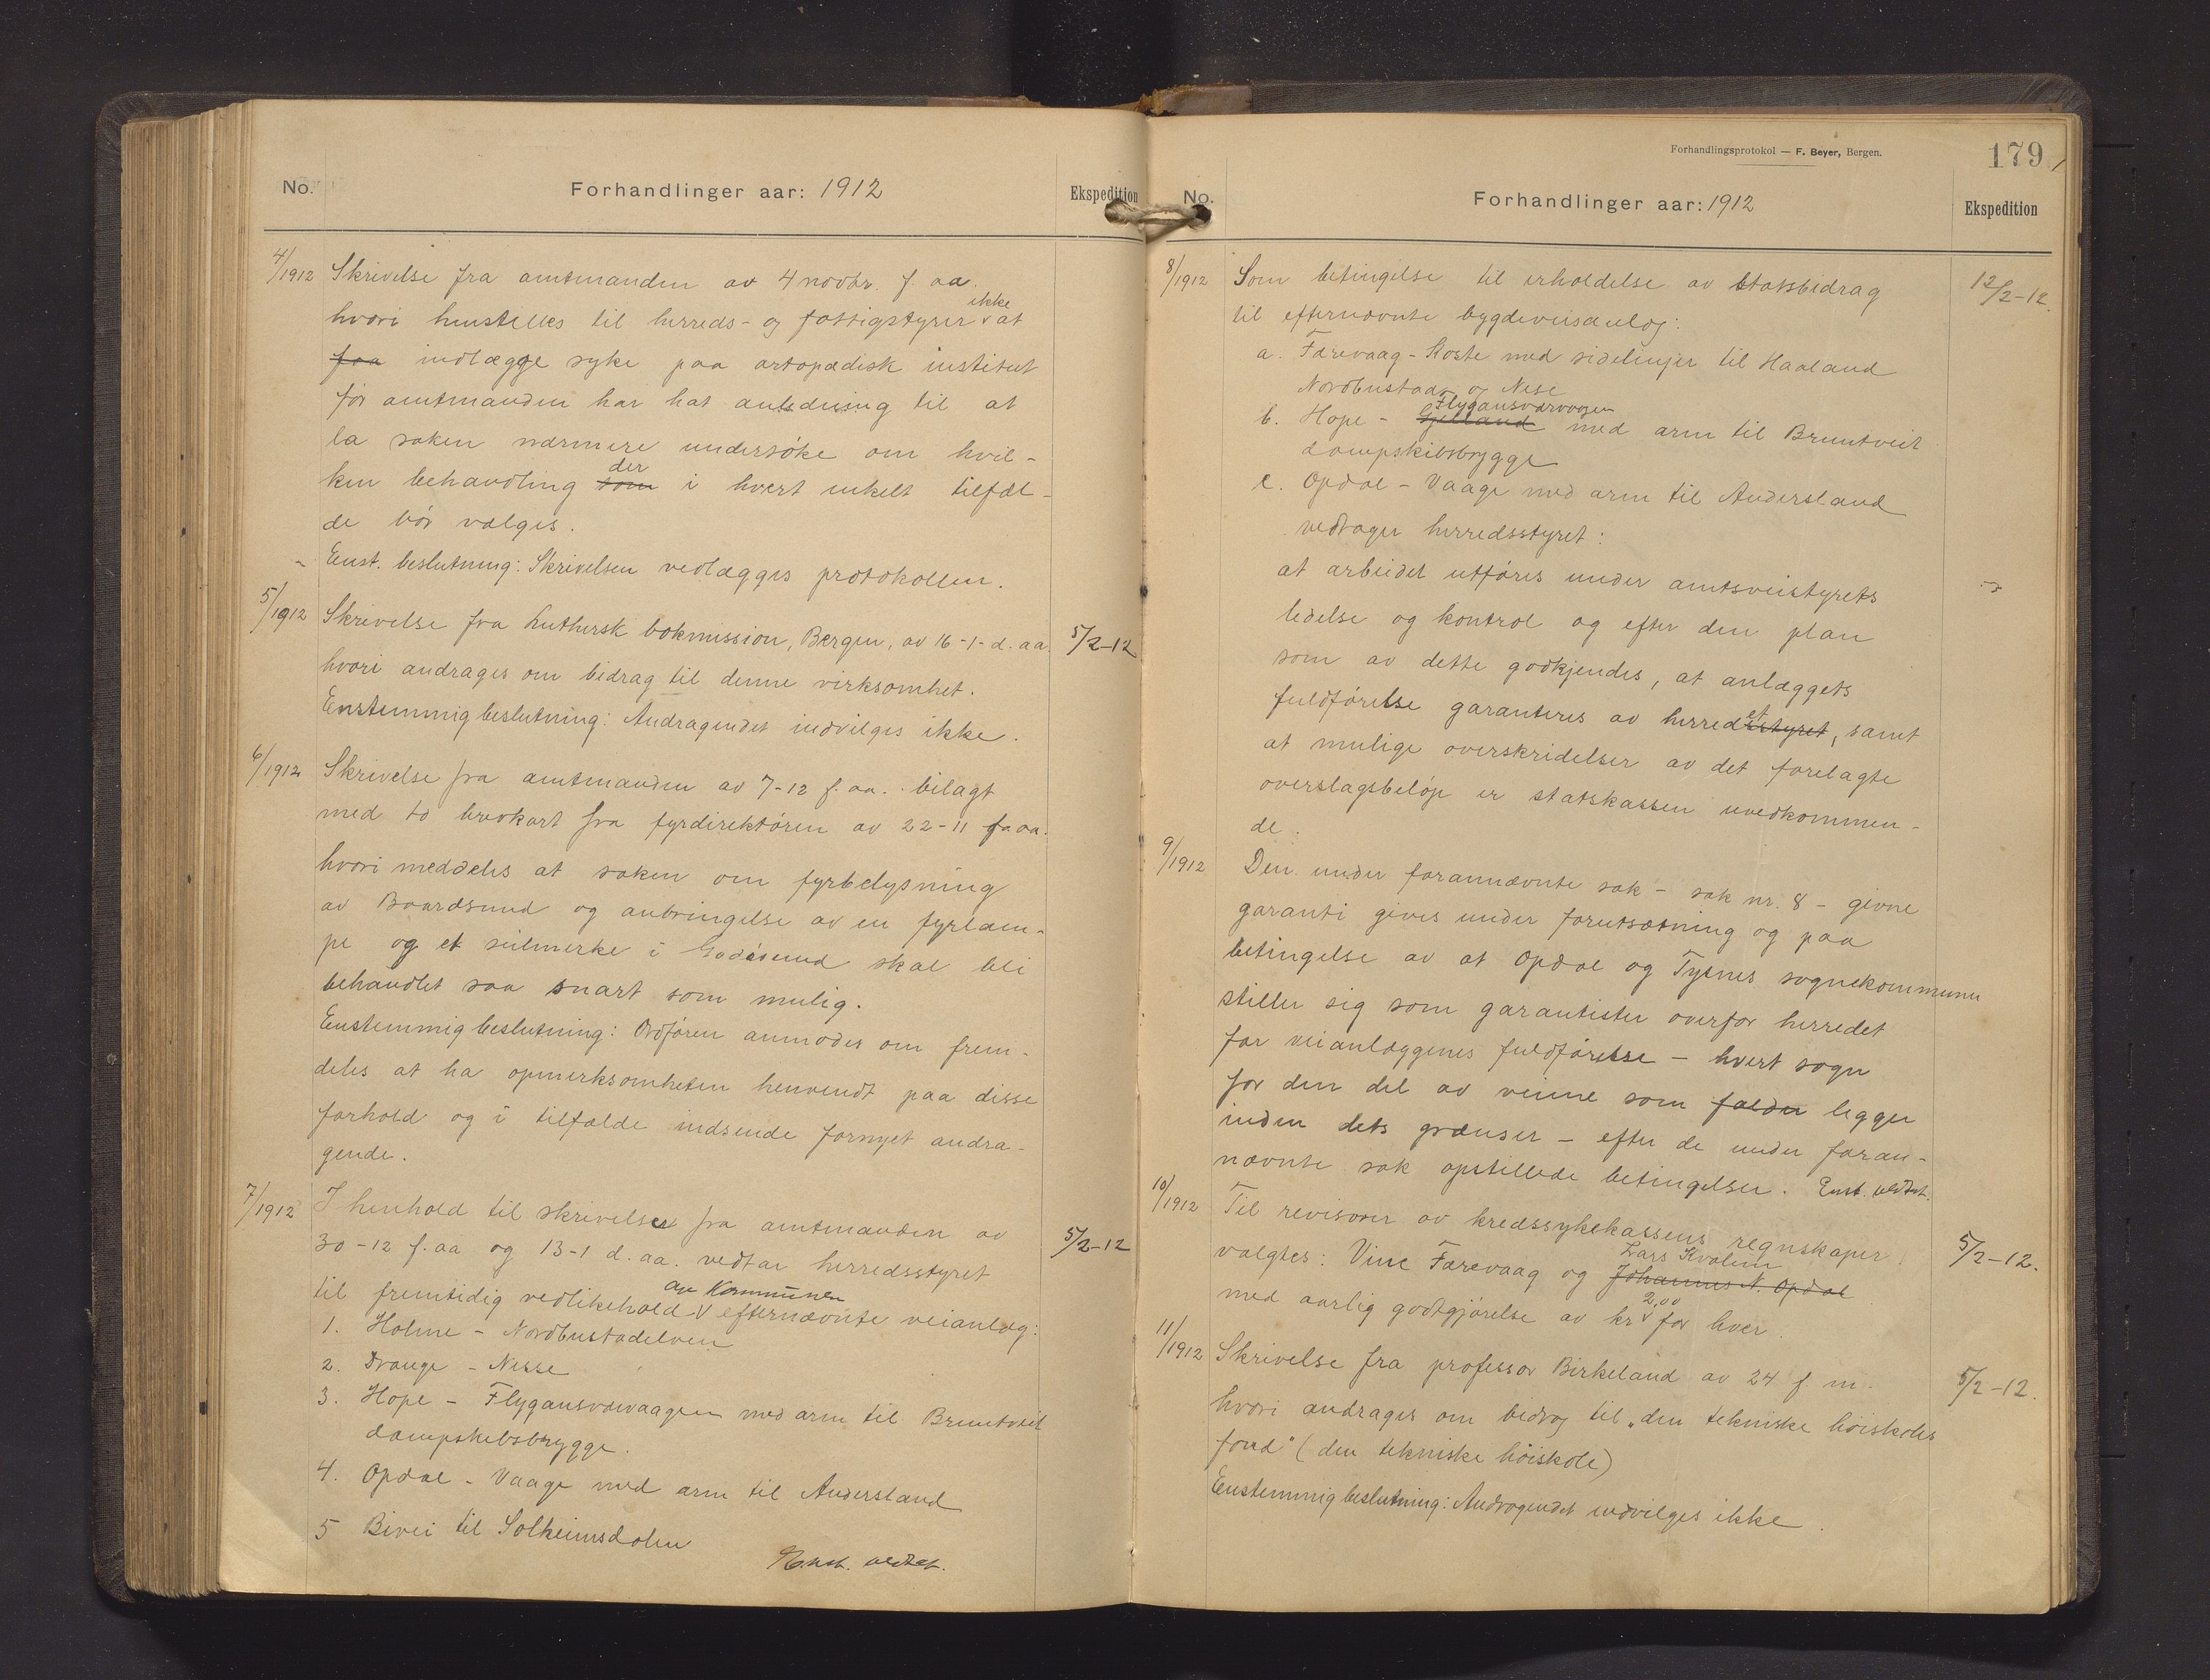 No.
Forhandlinger aar: 1912
Ekspedition
4/1912 Skrivelse fra amtmanden av 4 novbr. f. aa.
hvori henstilles til herreds- og fattigstyrer ikke at
faa indlægge syke paa ortopædisk institut
før amtmanden har hat anledning til at
la saken nærmere undersøke om hvil-
ken behandling som der i hvert enkelt tilfæl-
de bør vælges.
Enst. beslutning: Skrivelsen vedlægges protokollen.
5/1912 Skrivelse fra Luthersk bokmission, Bergen, av 16-1- d. aa. 5/2-12
hvori andrages om bidrag til denne virksomhet.
Enstemmig beslutning: Andragendet indvilges ikke.
6/1912 Skrivelse fra amtmanden av 7-12 f. aa. bilagt
med to brevkort fra fyrdirektøren av 22-11 f. aa.
hvori meddeles at saken om fyrbelysning
av Baardsund og anbringelse av en fyrlam-
pe og et seilmerke i Godøsund skal bli
behandlet saa snart som mulig.
Enstemmig beslutning: Ordføren anmodes om frem-
deles at ha opmerksomheten henvendt paa disse
forhold og i tilfælde indsende fornyet andra-
gende.
7/1912 I henhold til skrivelser fra amtmanden av
30-12 f. aa og 13-1 d. aa. vedtar herredsstyret 5/2-12
til fremtidig vedlikehold av kommunen efternævnte veianlæg:
1. Holme - Nordbustadelven
2. Drange - Nesse
3. Hope - Flygansværvaagen med arm til Bruntveit
dampskibsbrygge.
4. Opdal - Vaage med arm til Andersland
5 Bivei til Solheimsdalen
Enst. vedtat.
Forhandlingsprotokol — F. Beyer, Bergen.
179
No.
Forhandlinger aar: 1912
Ekspedition
8/1912 Som betingelse til erholdelse av statsbidrag 12/2-12.
til efternævnte bygdeveisanlæg:
a. Færevaag - Koste med sidelinjer til Haaland
Nordbustad og Nese
b. Hope - Gjelland Flygansværvaagen med arm til Bruntveit
dampskibsbrygge
c. Opdal - Vaage med arm til Andersland
vedtager herredsstyret:
at arbeidet utføres under amtsveistyrets
ledelse og kontrol og efter den plan
som av dette godkjendes, at anlæggets
fuldførelse garanteres av herredsstyret et, samt
at mulige overskridelser av det forelagte
overslagsbeløp er statskassen uvedkommen-
de.
9/1912 Den under forannævnte sak - sak nr. 8 - givne
garanti gives under forutsætning og paa
betingelse av at Opdal og Tysnes sognekommuner
stiller sig som garantister overfor herredet
for veianlæggenes fuldførelse - hvert sogn
for den del av veiene som falder ligger
inden dets grænser - efter de under foran-
nævnte sak opstillede betingelser. Enst. vedtat.
10/1912 Til revisorer av kredssykekassens regnskaper
valgtes: Vine Færevaag og Johannes N. Opdal Lars Kvalem 5/2-12.
med aarlig godtgjørelse av kr 2,00 for hver.
11/1912 Skrivelse fra professor Birkeland av 24 f. m. 5/2-12.
hvori andrages om bidrag til "den tekniske høiskoles
fond" (den tekniske høiskole)
Enstemmig beslutning: Andragendet indvilges ikke.